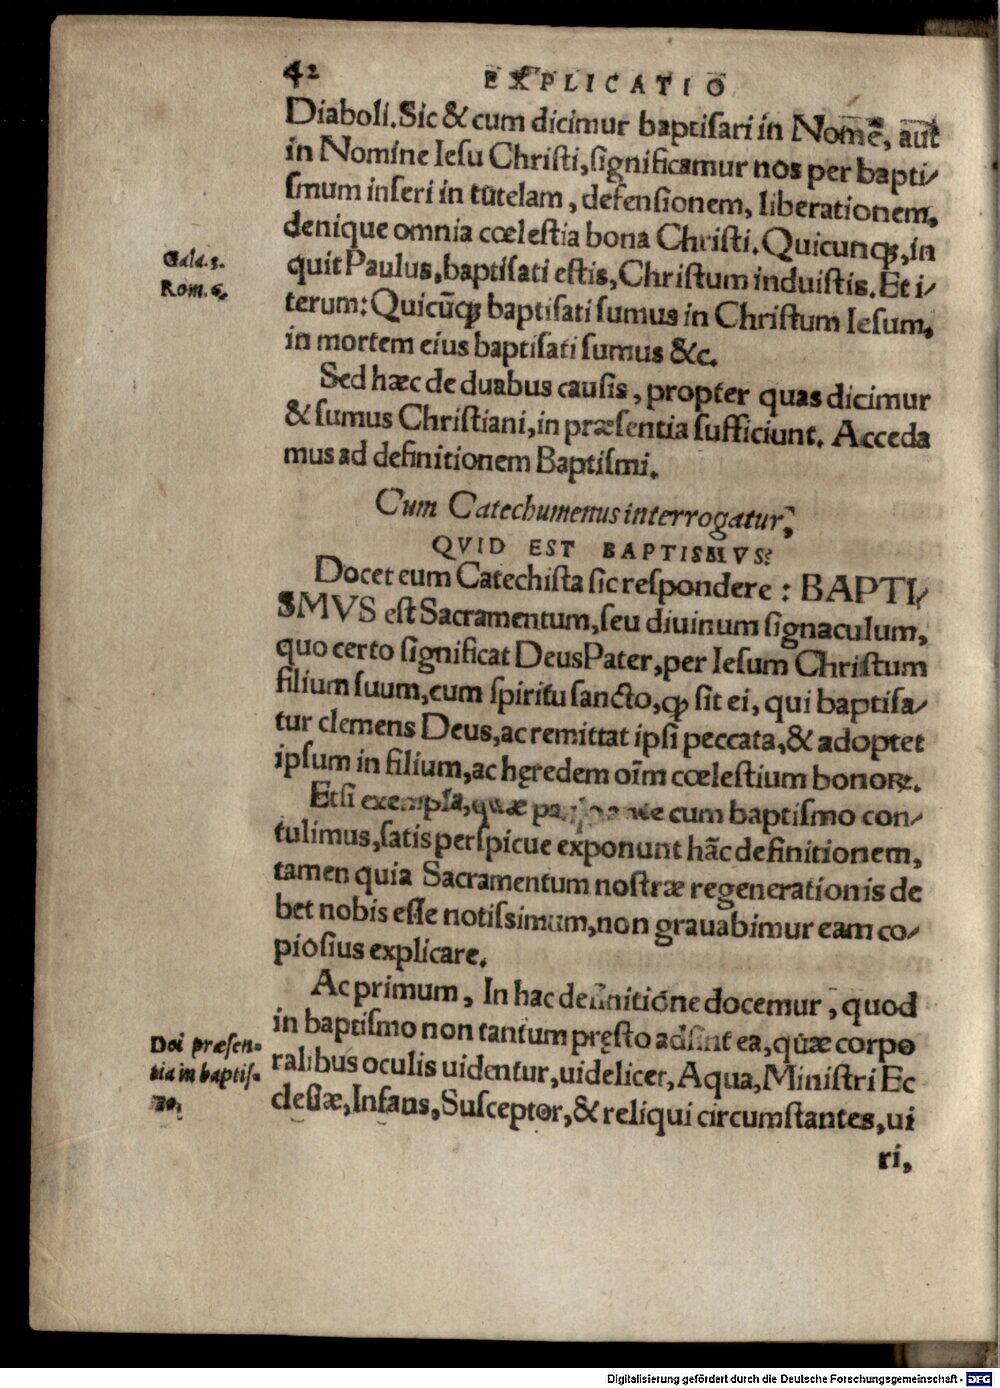 42
EXPLICATIO
Diaboli. Sic & cum dicimur baptiſari in Nomē, aut
in Nomine Ieſu Chriſti, ſignificamur nos per bapti⸗
ſmum inſeri in tutelam, defenſionem, liberationem,
denique omnia cœleſtia bona Chriſti. Quicunqꝫ, in
Gala. 3.
quit Paulus, baptiſati eſtis, Chriſtum induiſtis. Et i⸗
Rom. 6.
terum: Quicūqꝫ baptiſati ſumus in Chriſtum Ieſum,
in mortem eius baptiſati ſumus &c.
Sed hæc de duabus cauſis, propter quas dicimur
& ſumus Chriſtiani, in præſentia ſufficiunt. Acceda
mus ad definitionem Baptiſmi.
Cum Catechumenus interrogatur,
QVID EST BAPTISMVS?
Docet eum Catechiſta ſic reſpondere: BAPTI⸗
SMVS eſt Sacramentum, ſeu diuinum ſignaculum,
quo certo ſignificat Deus Pater, per Ieſum Chriſtum
filium ſuum, cum ſpiritu ſancto, qꝫ ſit ei, qui baptiſa⸗
tur clemens Deus, ac remittat ipſi peccata, & adoptet
ipſum in filium, ac hęredem oīm cœleſtium bonoꝝ.
Etſi exempla, quæ cum baptiſmo con⸗
tulimus, ſatis perſpicue exponunt hāc definitionem,
tamen quia Sacramentum noſtræ regenerationis de
bet nobis eſſe notiſsimum, non grauabimur eam co⸗
pioſius explicare.
Ac primum, In hac definitione docemur, quod
in baptiſmo non tantum pręſto adſint ea, quæ corpo
Dei præſen-
ralibus oculis uidentur, uidelicet, Aqua, Miniſtri Ec
tia in baptiſ-
cleſiæ, Infans, Suſceptor, & reliqui circumſtantes, ui
mo.
ri,
Digitalisierung gefördert durch die Deutsche Forschungsgemeinschaft - DFG